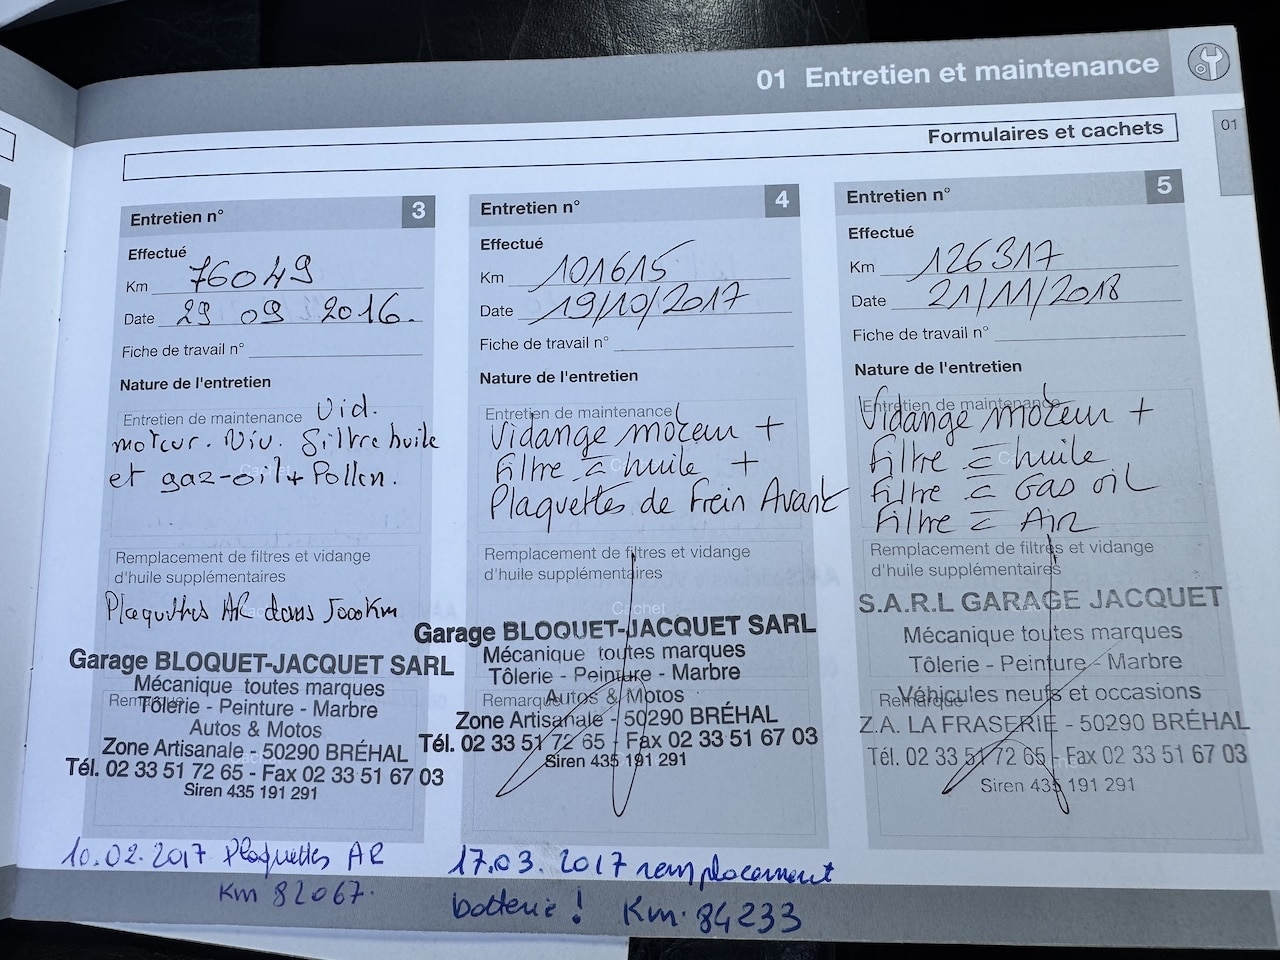 01 Entretien et maintenance
Formulaires et cachets
01
Entretien n° 3
Effectué
Km 76049
Date 29 09 2016.
Fiche de travail n°
Nature de l'entretien
Entretien de maintenance Vid.
moteur. Niv. Filtre huile
et gaz-oil + Pollen.
Cachet
Remplacement de filtres et vidange
d'huile supplémentaires
Plaquettes AR dans 5000Km
Cachet
Garage BLOQUET-JACQUET SARL
Mécanique toutes marques
Remarque
Tôlerie - Peinture - Marbre
Autos & Motos
Zone Artisanale - 50290 BRÉHAL
Tél. 02 33 51 72 65 - Fax 02 33 51 67 03
Siren 435 191 291
10.02.2017 Plaquettes AR
Km 82067.
Entretien n° 4
Effectué
Km 101615
Date 19/10/2017
Fiche de travail n°
Nature de l'entretien
Entretien de maintenance
Vidange moteur +
Filtre à huile +
Plaquettes de Frein Avant
Remplacement de filtres et vidange
d'huile supplémentaires
Cachet
Garage BLOQUET-JACQUET SARL
Mécanique toutes marques
Tôlerie - Peinture - Marbre
Remarque
Autos & Motos
Zone Artisanale - 50290 BRÉHAL
Tél. 02 33 51 72 65 - Fax 02 33 51 67 03
Siren 435 191 291
17.03. 2017 remplacement
batterie ! Km. 84233
Entretien n° 5
Effectué
Km 126317
Date 21/11/2018
Fiche de travail n°
Nature de l'entretien
Entretien de maintenance
Vidange moteur +
Filtre à huile
Filtre à Gas oil
Filtre à Air
Remplacement de filtres et vidange
d'huile supplémentaires
S.A.R.L GARAGE JACQUET
Mécanique toutes marques
Tôlerie - Peinture - Marbre
Véhicules neufs et occasions
Remarque
Z.A. LA FRASERIE - 50290 BRÉHAL
Tél. 02 33 51 72 65 - Fax 02 33 51 67 03
Siren 435 191 291